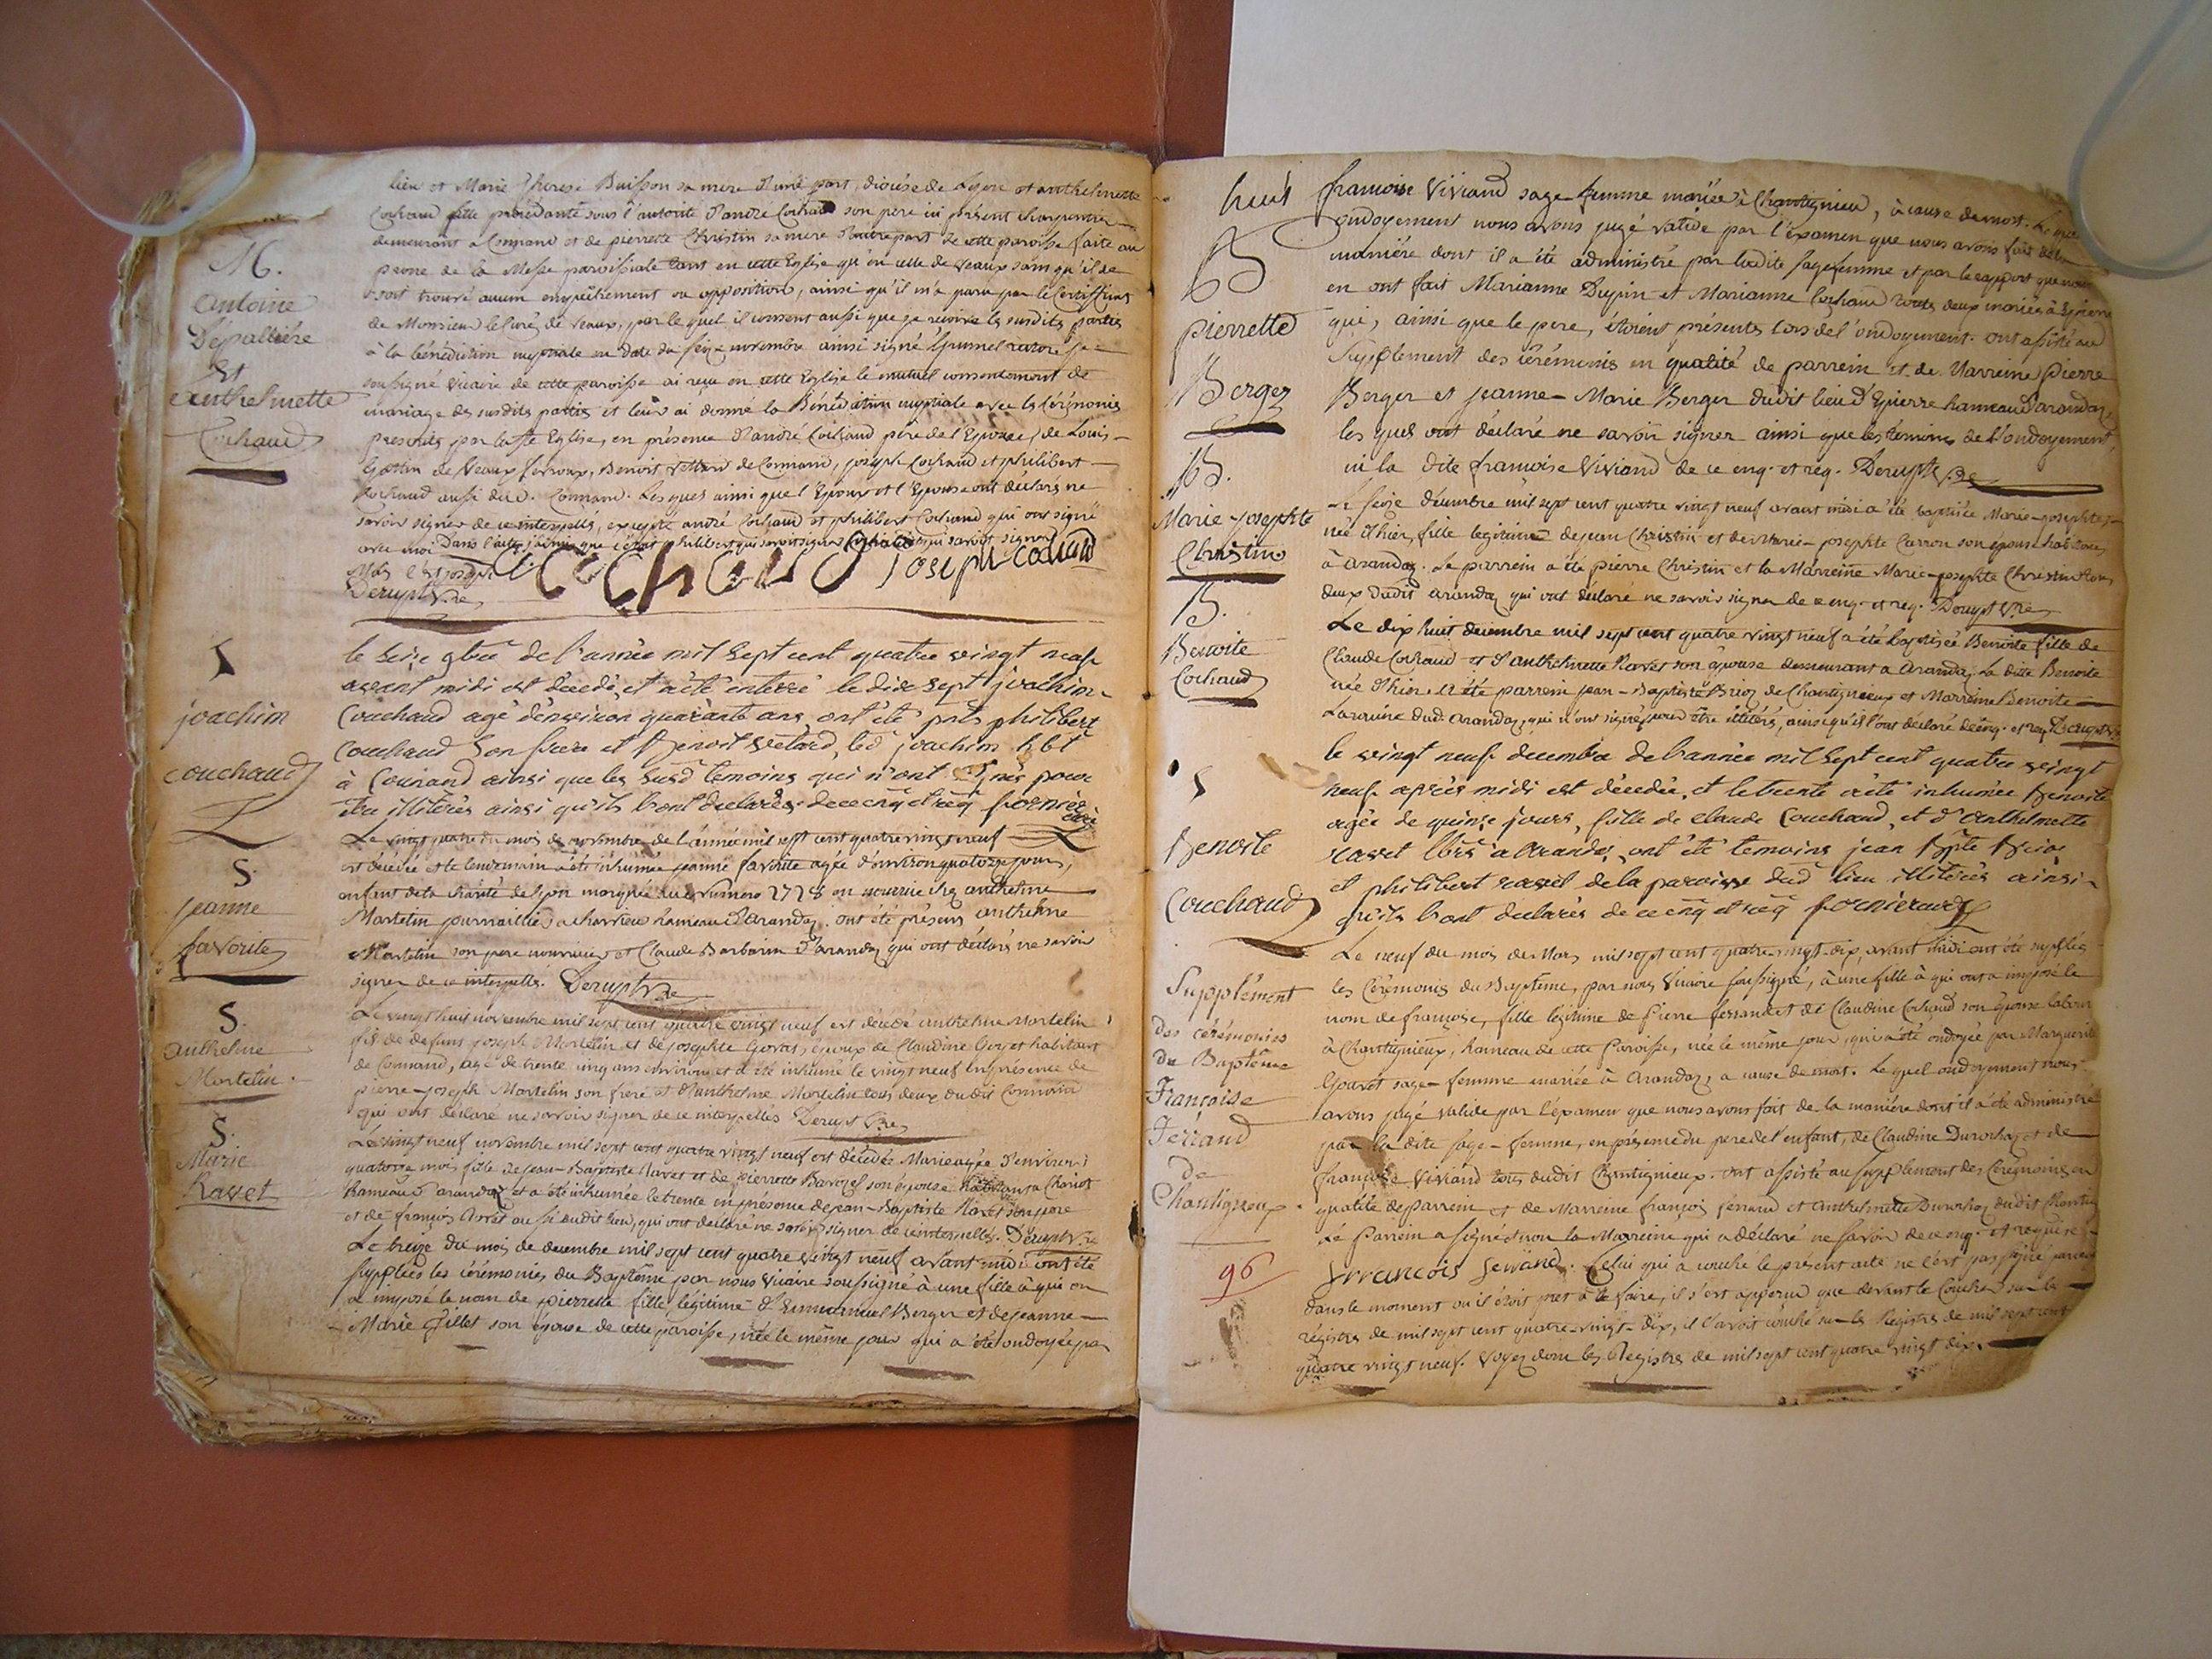 M.
Antoine
Dépallière
Et
Anthelmette
Cochaud
lieu et Marie Therese Buisson sa mere d'une part, diocése de Lyon et anthelmette
Cochaud fille procédante sous l'autorité d'andré Cochaud son pere ici présent charpentier
demeurant a Connand et de pierrette Christin sa mere d'autre part de cette paroisse faite au
prone de la Messe paroissiale tant en cette Eglise qu'en celle de Veaux sans qu'il se
soit trouvé aucun empêchement ou opposition, ainsi qu'il m'a paru par le Certifficat
de Monsieur le Curé de Veaux, par le quel il consent aussi que je reçoive les susdits parties
à la bénédiction nuptiale en date du seize novembre ainsi signé
soussigné Vicaire de cette paroisse ai reçu en cette Eglise le mutuel consentement de
mariage des susdits parties et leur ai donné la Bénédiction nuptiale avec les Cérémonies
prescrites par la Ste Eglise, en présence d'andré Cochaud père de l'Epouse, de Louis
de Veaux, Benoit vettard de Connand, joseph Cochaud et philibert
Cochaud aussi dud. Connand. Lesquels ainsi que l'Epoux et l'Epouse ont déclaré ne
savoir signer de ce interpellés, excepté andré Cochaud et philibert Cochaud qui ont signé
avec moi Dans l'acte j'ai mis que c'était philibert qui savoit signer qui savoit signer
Mais c'est joseph
Derupt Vre
Cochaud joseph cochaud
S
joachim
Couchaud
le seize 9bre de l'année mil sept cent quatre vingt neuf
avant midi est décedé, et a été enterré le dix sept joachim
Couchaud agé d'environ quarante ans, ont été prés philibert
Couchaud son frere et Benoit vetard, led joachim hbt
à Conand ainsi que les susd temoins qui n'ont signés pour
être illiterés ainsi qu'ils l'ont declarés de ce enq et req fornier
curé
S.
jeanne
favorite
Le vingt quatre du mois de novembre de l'année mil sept cent quatre vingt neuf
est décédée et le lendemain a été inhumée jeanne favorite agée d'environ quatorze jours,
enfant de la charité de lyon marquée du Numero 2728 en nourrice chez anthelme
Martelin journaillier a charvieu hameau d'arandaz. ont été présens anthelme
Martelin son pere nourricier et Claude Barbarin d'arandaz qui ont déclaré ne savoir
signer de ce interpellé. Derupt Vre
S.
Anthelme
Martelin.
Le vingt huit novembre mil sept cent quatre vingt neuf est décédé anthelme Martelin
fils de defunt joseph Martelin et de josephte Goras, epoux de Claudine Goyet habitant
de Connand, agé de trente cinq ans environ et a été inhumé le vingt neuf en présence de
pierre-joseph Martelin son frere et d'anthelme Martelin tous deux dudit Connand
qui ont déclaré ne savoir signer de ce interpellés Derupt Vre
S.
Marie
Ravet
Le vingt neuf novembre mil sept cent quatre vingt neuf est décédée Marie agée d'environ
quatorze mois fille de jean-Baptiste Ravet et de pierrette Baroyel son épouse habitans a
hameau d'arandaz et a été inhumée le trente en présence de jean-Baptiste Ravet son pere
et de françois aussi dudit lieu, qui ont déclaré ne savoir signer de ce interpellés. Derupt Vre
Le treize du mois de decembre mil sept cent quatre vingt neuf avant midi ont été
supplées les cérémonies du Baptême par nous Vicaire soussigné à une fille à qui on
a imposé le nom de pierrette fille légitime d'Emmanuel Berger et de jeanne
Marie Gillet son épouse de cette paroisse, née le même jour qui a été ondoyée par
huit
B
pierrette
Berger
francoise Viviand sage femme mariée à Chantignieu, à cause de mort. Le quel
ondoyement nous avons jugé valide par l'examen que nous avons fait de la
manière dont il a été administré par ladite sagefemme et par le rapport que nous
en ont fait Marianne Dupin et Marianne Cochaud toutes deux mariées à Epierre
qui, ainsi que le pere, étoient présents lors de l'ondoyement. ont assisté au
Supplement des cérémonies en qualité de parrein et de Marreine pierre
Berger et jeanne-Marie Berger dudit lieu d'Epierre hameau d'arandaz
les quels ont déclaré ne savoir signer ainsi que les temoins de l'ondoyement,
ni la dite francoise Viviand de ce enq. et req. Derupt Vre
B.
Marie-josephte
Christin
Le seize décembre mil sept cent quatre vingt neuf avant midi a été baptisée Marie-josephte
née d'hier, fille légitime de jean Christin et de Marie-josephte Carron son épouse habitans
à arandaz. Le parrein a été pierre Christin et la Marreine Marie-josephte Christin tous
deux dudit arandaz qui ont déclaré ne savoir signer de ce enq. et req. Derupt Vre
B.
Benoite
Cochaud
Le dix huit décembre mil sept cent quatre vingt neuf a été baptisée Benoite fille de
Claude Cochaud et d'anthelmette Ravet son épouse demeurant a arandaz. La dite Benoite
née d'hier. a été parrein jean-Baptiste Brioz de Chantignieux et Marreine Benoite
dud. arandaz, qui n'ont signé pour être illitérés, ainsi qu'ils l'ont déclaré de enq. et req. Derupt Vre
S
Benoite
Couchaud
le vingt neuf décembre de l'année mil sept cent quatre vingt
neuf après midi est décedée, et le trente a été inhumée Benoite
agée de quinse jours, fille de claude Couchaud, et d'anthelmette
ravet lbrs a arandas, ont été temoins jean Bpte Brioz
et philibert ravet de la paroisse dud lieu illiterés ainsi
qu'ils l'ont declarés de ce enq et req fornier curé
Supplément
des cérémonies
du Baptême
Françoise
Férrand
de
Chantigneux
Le neuf du mois de Mars mil sept cent quatre-vingt-dix, avant midi ont été supplées
les Cérémonies du Baptême, par nous Vicaire soussigné, à une fille à qui on a imposé le
nom de françoise, fille légitime de Pierre ferrand et de Claudine Cochaud son épouse labour
à Chantignieux, hameau de cette Paroisse, née le même jour, qui a été ondoyée par Marguerite
Gouvet sage-femme mariée à Arandaz, a cause de mort. Le quel ondoyement nous
avons jugé valide par l'examen que nous avons fait de la manière dont il a été administré
par la dite sage-femme, en présence du pere de l'enfant, de Claudine Durochaz et de
françoise Viviand tous dudit Chantignieux. Ont assisté au supplement des Cérémonies en
qualité de parrein et de Marreine françois ferrand et Anthelmette Durochaz dudit Chantig
Le Parrein a signé et non la Marreine qui a déclaré ne savoir de ce enq. et requise
96
françois ferrand. Celui qui a couché le présent acte ne l'est pas signé parceq
dans le moment où il étoit prêt à le faire, il s'est apperçu que devant le Coucher sur les
régistres de mil sept cent quatre-vingt-dix, il l'avoit couché sur les Registres de mil sept cent
quatre vingt neuf. Voyez donc les Registres de mil sept cent quatre vingt dix.